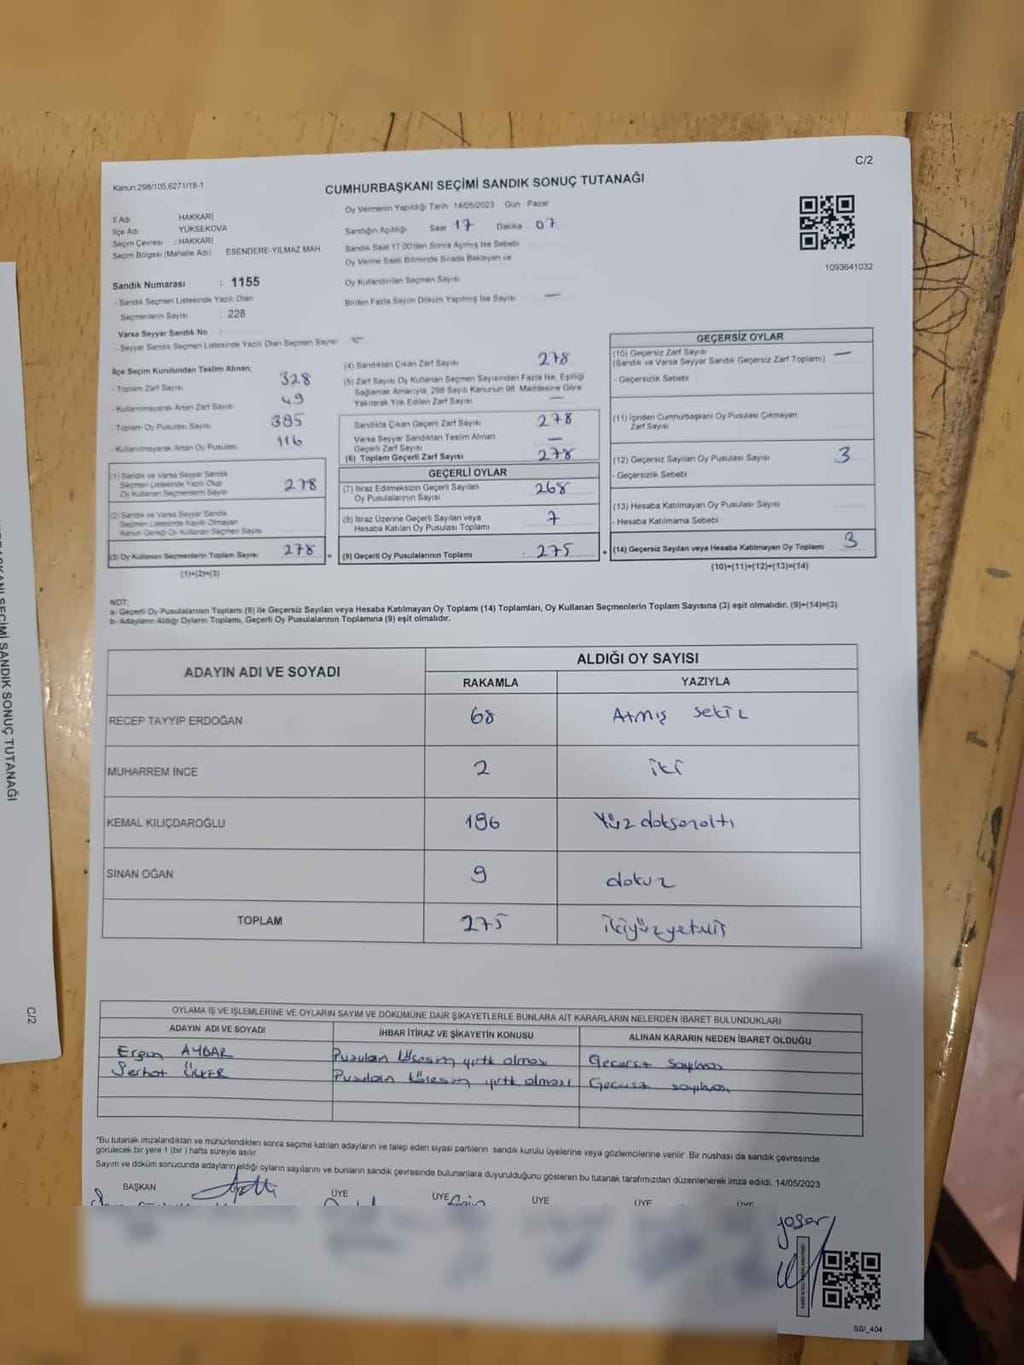 C/2
Kanun:298/105,6271/18-1
CUMHURBAŞKANI SEÇİMİ SANDIK SONUÇ TUTANAĞI
İl Adı HAKKARİ
İlçe Adı YÜKSEKOVA
Seçim Çevresi : HAKKARİ
Seçim Bölgesi (Mahalle Adı) ESENDERE-YILMAZ MAH
Oy Vermenin Yapıldığı Tarih 14/05/2023 Gün Pazar
Sandığın Açıldığı Saat 17 Dakika 07
Sandık Saat 17:00'den Sonra Açılmış İse Sebebi
Oy Verme Saati Bitiminde Sırada Bekleyen ve
Oy Kullandırılan Seçmen Sayısı
Birden Fazla Sayım Döküm Yapılmış İse Sayısı —
1093641032
Sandık Numarası : 1155
- Sandık Seçmen Listesinde Yazılı Olan
Seçmenlerin Sayısı : 228
Varsa Seyyar Sandık No
- Seyyar Sandık Seçmen Listesinde Yazılı Olan Seçmen Sayısı
İlçe Seçim Kurulundan Teslim Alınan;
- Toplam Zarf Sayısı 328
- Kullanılmayarak Artan Zarf Sayısı 49
- Toplam Oy Pusulası Sayısı 395
- Kullanılmayarak Artan Oy Pusulası 116
(1) Sandık ve Varsa Seyyar Sandık
Seçmen Listesinde Yazılı Olup
Oy Kullanan Seçmenlerin Sayısı 278
(2) Sandık ve Varsa Seyyar Sandık
Seçmen Listesinde Kayıtlı Olmayan
Kanun Gereği Oy Kullanan Seçmen Sayısı
(3) Oy Kullanan Seçmenlerin Toplam Sayısı 278 =
(1)+(2)=(3)
(4) Sandıktan Çıkan Zarf Sayısı 278
(5) Zarf Sayısı Oy Kullanan Seçmen Sayısından Fazla İse, Eşitliği
Sağlamak Amacıyla, 298 Sayılı Kanunun 98. Maddesine Göre
Yakılarak Yok Edilen Zarf Sayısı —
Sandıkta Çıkan Geçerli Zarf Sayısı 278
Varsa Seyyar Sandıktan Teslim Alınan
Geçerli Zarf Sayısı —
(6) Toplam Geçerli Zarf Sayısı 278
GEÇERLİ OYLAR
(7) İtiraz Edilmeksizin Geçerli Sayılan
Oy Pusulalarının Sayısı 268
(8) İtiraz Üzerine Geçerli Sayılan veya
Hesaba Katılan Oy Pusulası Toplamı 7
(9) Geçerli Oy Pusulalarının Toplamı : 275 +
GEÇERSİZ OYLAR
(10) Geçersiz Zarf Sayısı
(Sandık ve Varsa Seyyar Sandık Geçersiz Zarf Toplamı) —
- Geçersizlik Sebebi
(11) İçinden Cumhurbaşkanı Oy Pusulası Çıkmayan
Zarf Sayısı
(12) Geçersiz Sayılan Oy Pusulası Sayısı 3
- Geçersizlik Sebebi
(13) Hesaba Katılmayan Oy Pusulası Sayısı
- Hesaba Katılmama Sebebi
(14) Geçersiz Sayılan veya Hesaba Katılmayan Oy Toplamı 3
(10)+(11)+(12)+(13)=(14)
NOT:
a- Geçerli Oy Pusulalarının Toplamı (9) ile Geçersiz Sayılan veya Hesaba Katılmayan Oy Toplamı (14) Toplamları, Oy Kullanan Seçmenlerin Toplam Sayısına (3) eşit olmalıdır. (9)+(14)=(3)
b- Adayların Aldığı Oyların Toplamı, Geçerli Oy Pusulalarının Toplamına (9) eşit olmalıdır.
ADAYIN ADI VE SOYADI ALDIĞI OY SAYISI
RAKAMLA YAZIYLA
RECEP TAYYİP ERDOĞAN 68 Atmış sekiz
MUHARREM İNCE 2 iki
KEMAL KILIÇDAROĞLU 196 Yüz doksanaltı
SİNAN OĞAN 9 dokuz
TOPLAM 275
OYLAMA İŞ VE İŞLEMLERİNE VE OYLARIN SAYIM VE DÖKÜMÜNE DAİR ŞİKAYETLERLE BUNLARA AİT KARARLARIN NELERDEN İBARET BULUNDUKLARI
ADAYIN ADI VE SOYADI İHBAR İTİRAZ VE ŞİKAYETİN KONUSU ALINAN KARARIN NEDEN İBARET OLDUĞU
Ergün AYBAR Pusulan köşesin yırtk olması
Serhat ÜLKER Pusulan köşesin yırtk olması
"Bu tutanak imzalandıktan ve mühürlendikten sonra seçime katılan adayların ve talep eden siyasi partilerin sandık kurulu üyelerine veya gözlemcilerine verilir. Bir nüshası da sandık çevresinde
görülecek bir yere 1 (bir) hafta süreyle asılır.
Sayım ve döküm sonucunda adayların aldığı oyların sayılarını ve bunların sandık çevresinde bulunanlara duyurulduğunu gösteren bu tutanak tarafımızdan düzenlenerek imza edildi. 14/05/2023
BAŞKAN ÜYE ÜYE ÜYE ÜYE ÜYE
SSİ_404
CUMHURBAŞKANI SEÇİMİ SANDIK SONUÇ TUTANAĞI
C/2